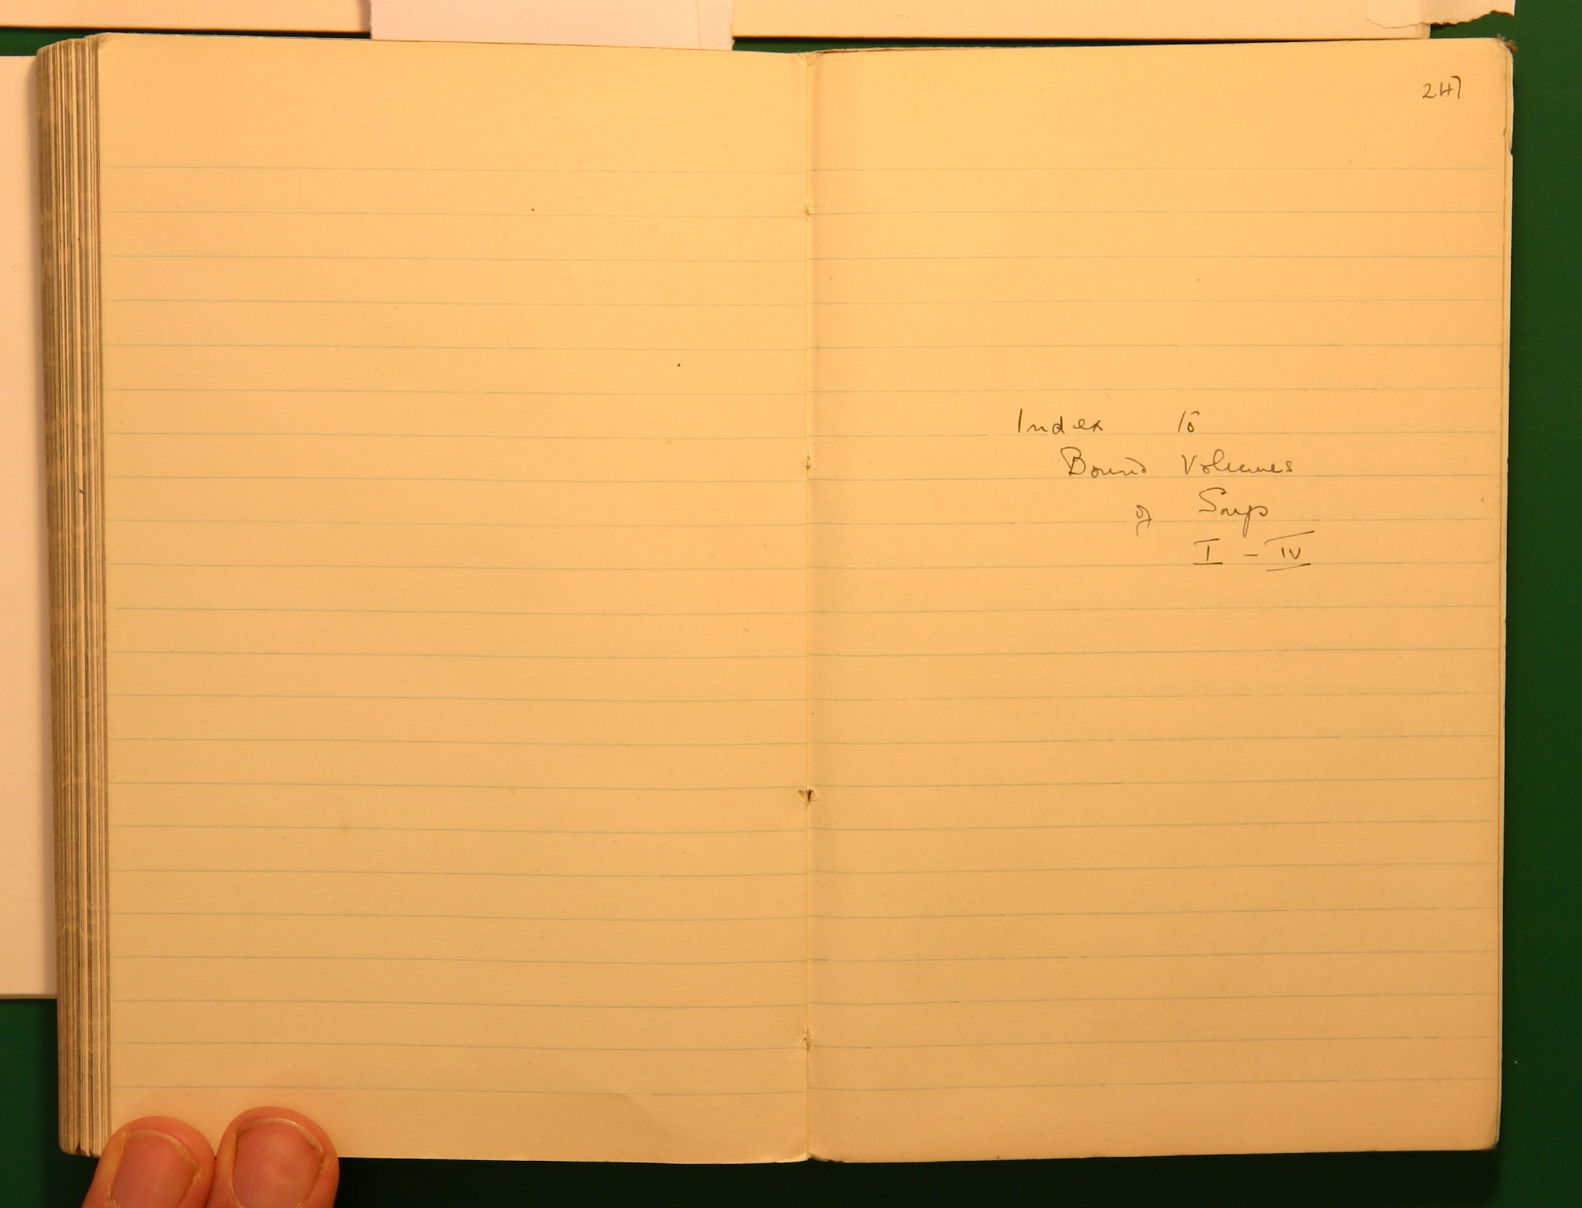 247
Index to
Bound Volumes
of Songs
I - IV